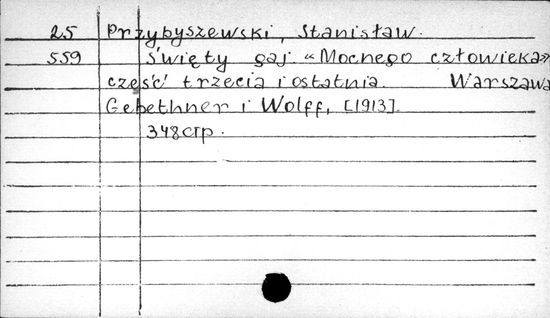 25 Przybyszewski, Stanisław.
559 Święty gaj «Mocnego człowieka»
część trzecia i ostatnia. Warszawa
Gebethner i Wolff, [1913].
348 стр.